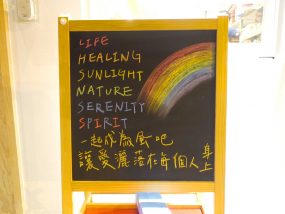 LIFE
HEALING
SUNLIGHT
NATURE
SERENITY
SPIRIT
一起成為風吧
讓愛灑落在每個人身上